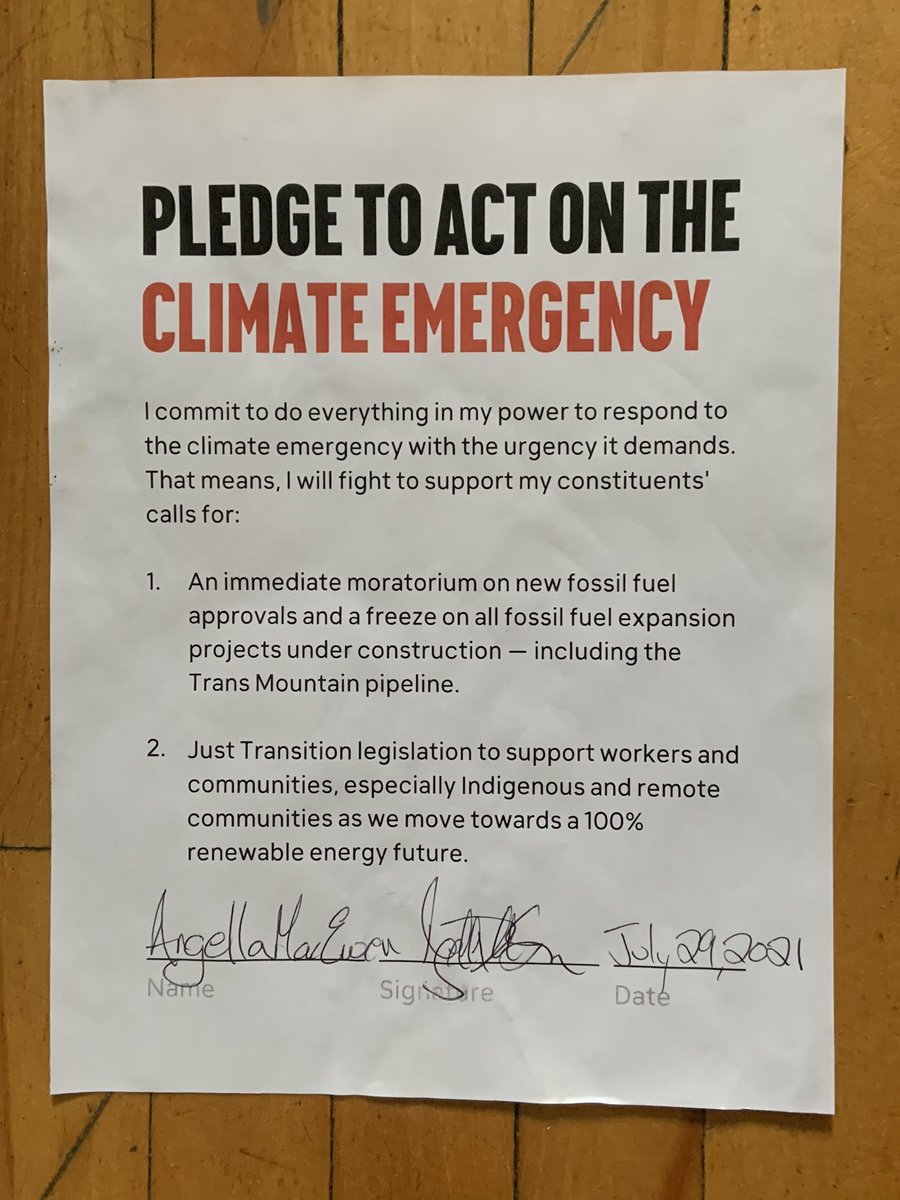 PLEDGE TO ACT ON THE
CLIMATE EMERGENCY
I commit to do everything in my power to respond to
the climate emergency with the urgency it demands.
That means, I will fight to support my constituents'
calls for:
1. An immediate moratorium on new fossil fuel
approvals and a freeze on all fossil fuel expansion
projects under construction — including the
Trans Mountain pipeline.
2. Just Transition legislation to support workers and
communities, especially Indigenous and remote
communities as we move towards a 100%
renewable energy future.
Angella MacEwen July 29, 2021
Name Signature Date